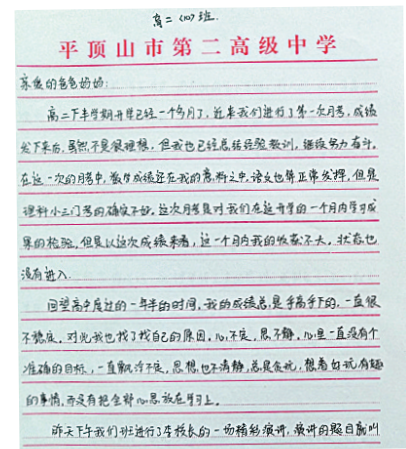 高二 (10) 班
平顶山市第二高级中学
亲爱的爸爸妈妈:
高二下半学期开学已经一个多月了,近来我们进行了第一次月考,成绩
发下来后,虽然不是很理想,但我也已经总结经验教训,继续努力奋斗。
在这一次的月考中,数学成绩还在我的意料之中,语文也算正常发挥,但是
理科小三门考的确实不好。这次月考是对我们在这开学的一个月内学习成
果的检验,但是从这次成绩来看,这一个月内我的收获不大,状态也
没有进入.
回望高中度过的一年半的时间,我的成绩总是乎高乎下的,一直很
不稳定。对此我也找了找自己的原因。心不定,思不静。心里一直没有个
准确的目标,一直飘浮不定,思想也不清静,总是贪玩,想着好玩,有趣
的事情,而没有把全部心思放在学习上。
昨天下午我们班进行了李校长的一场精彩演讲,演讲的题目就叫